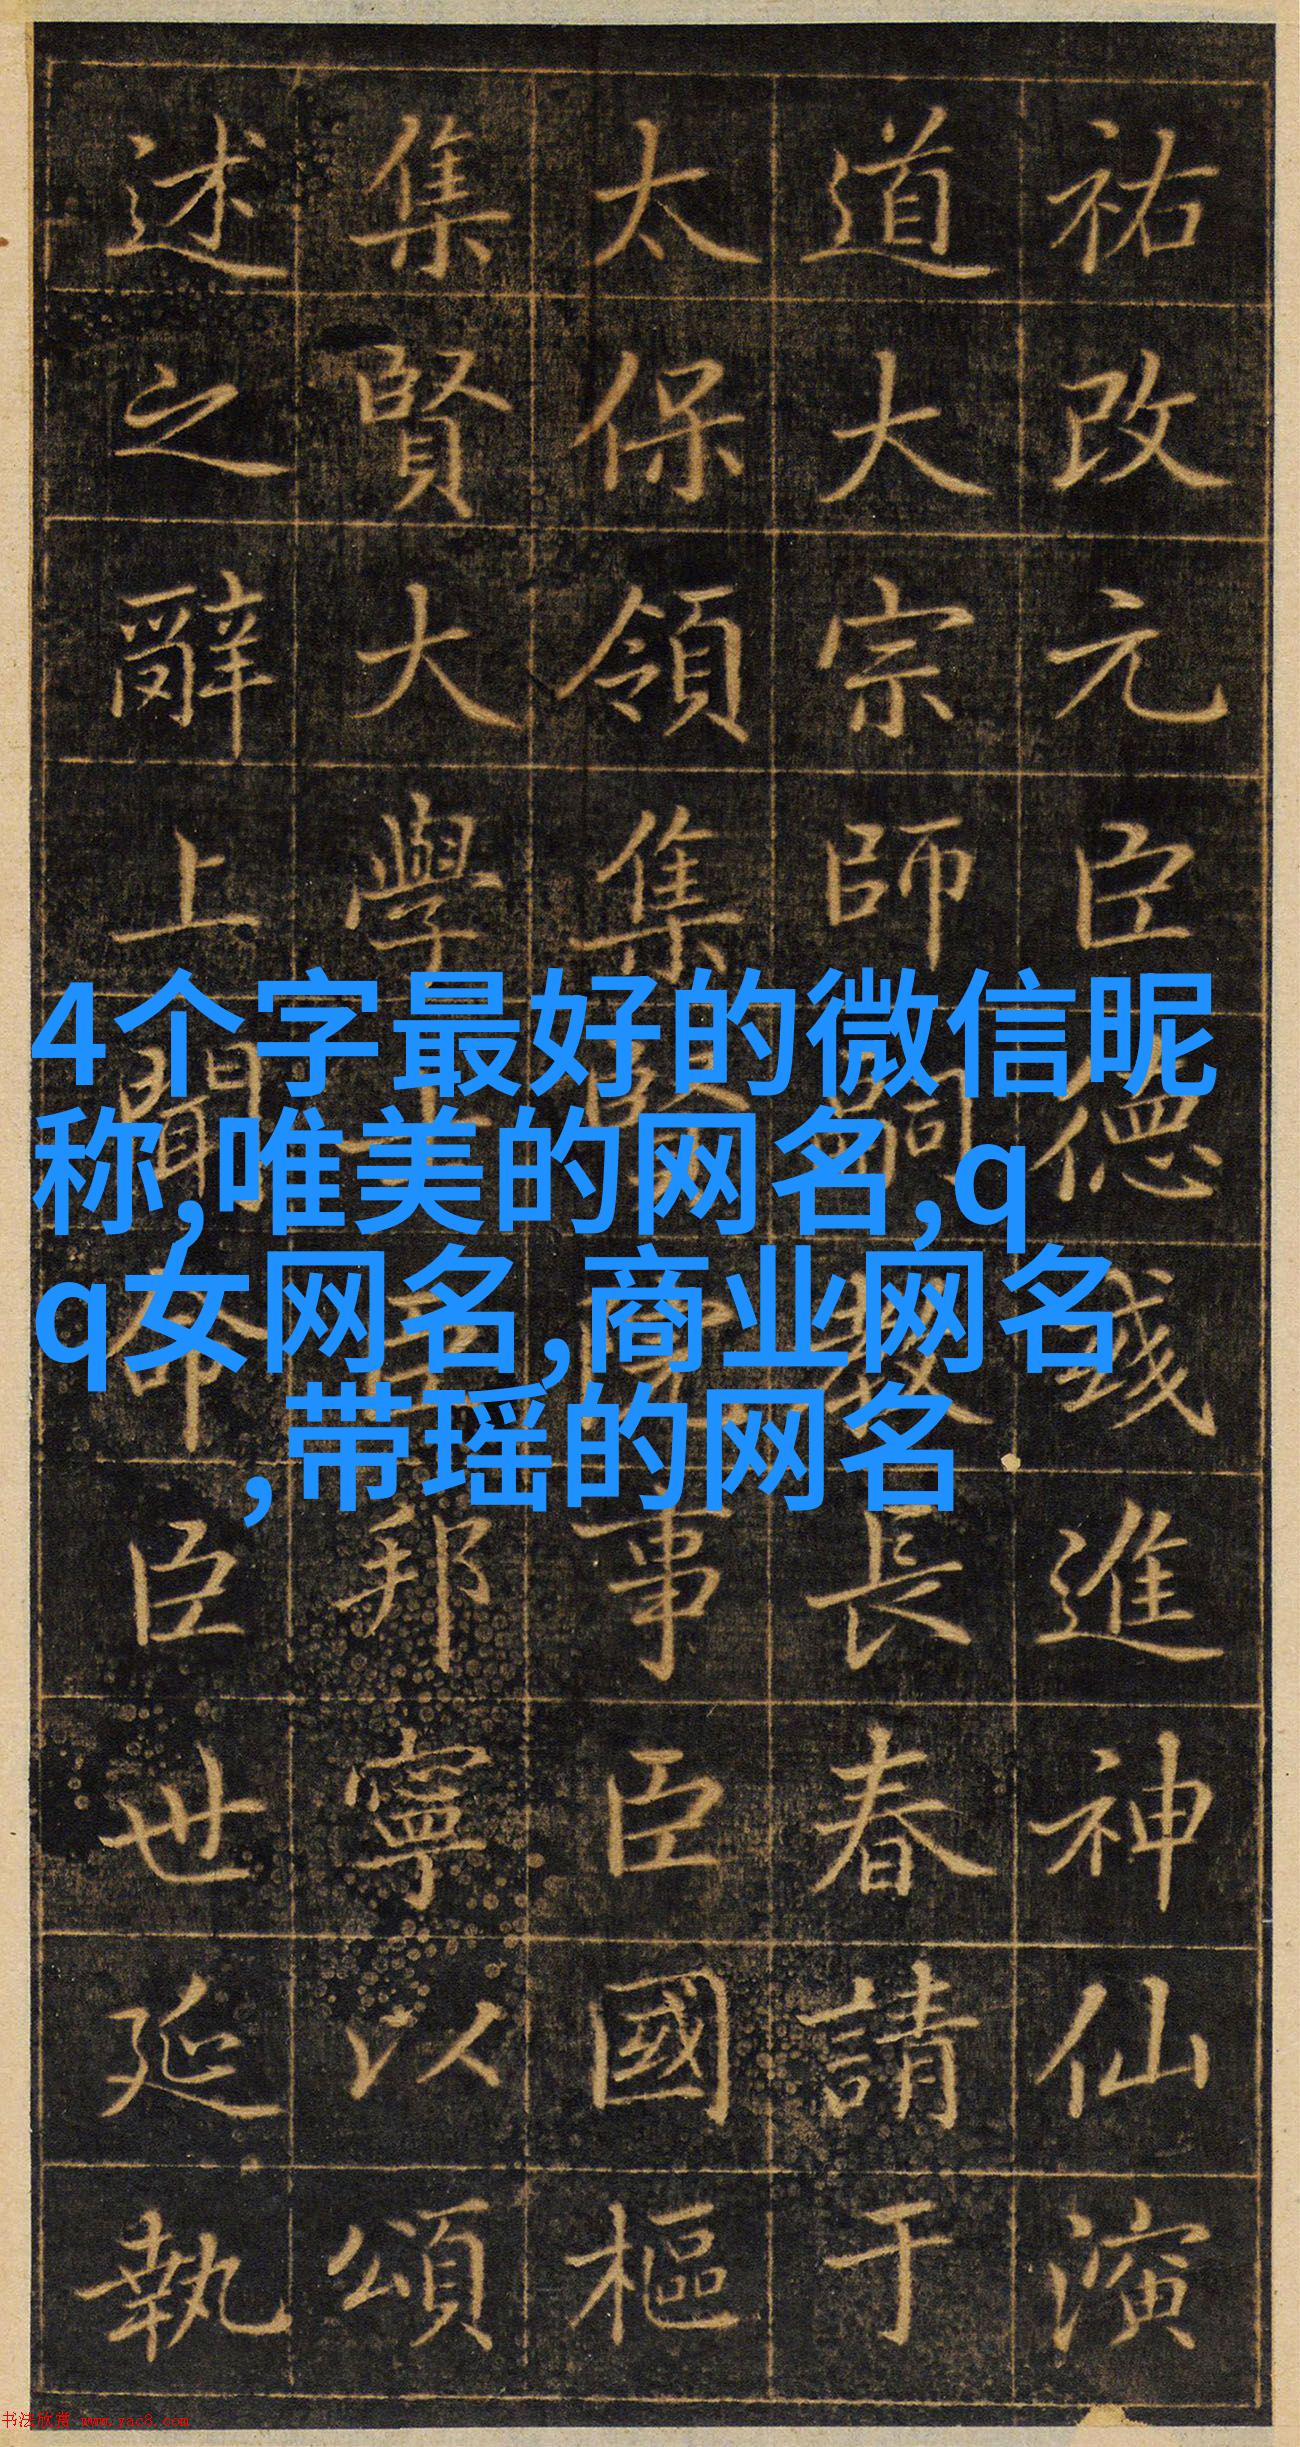 祐改元臣德彧進神仙演
道大宗師嗣教長春請于
太保領集賢院事臣國樞
集賢大學士臣邦寧以頌
述之辭上聞命臣世延執
4个字最好的微信昵
称,唯美的网名,q
q女网名,商业网名
,带瑶的网名
书法欣赏 www.yac8.com